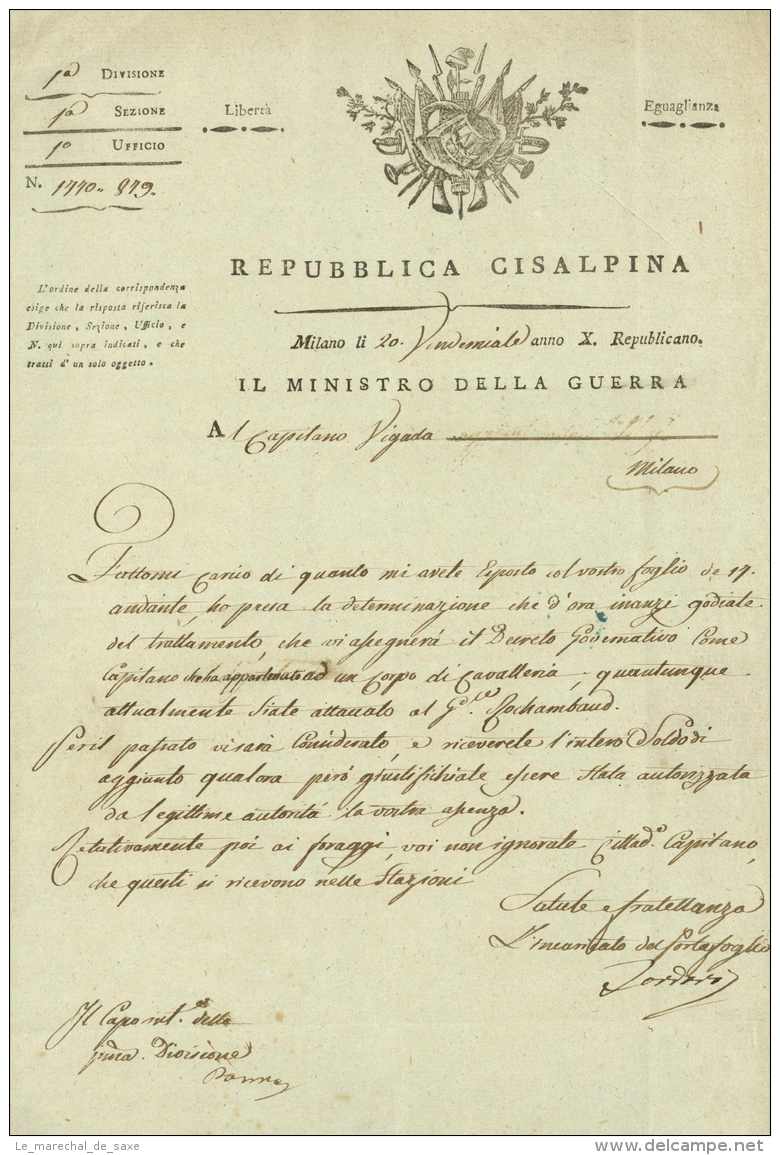 1ª DIVISIONE
1ª SEZIONE
1º UFFICIO
N. 1770. 879.
Libertà
Eguaglianza
REPUBBLICA CISALPINA
L'ordine della corrispondenza
esige che la risposta riferisca la
Divisione, Sezione, Ufficio, e
N. qui sopra indicati, e che
tratti d'un solo oggetto.
Milano li 20. Vendemiale anno X. Republicano.
IL MINISTRO DELLA GUERRA
Al Capitano Vigada
Milano
Fattomi carico di quanto mi avete esposto col vostro foglio de 17.
andante, ho presa la determinazione che d'ora inanzi godiate
del trattamento, che vi assegnerà il Decreto Governativo come
Capitano che ha appartenuto ad un Corpo di Cavalleria, quantunque
attualmente siate attaccato al G.le Rochambaud.
Per il passato vi sarà considerato, e riceverete l'intero Soldo di
aggiunto qualora però giustifichiate essere stata autorizzata
da legittime autorità la vostra assenza.
Relativamente poi ai foraggi, voi non ignorate Cittad.º Capitano,
che questi si ricevono nelle Stazioni
Salute e fratellanza
L'incaricato del Portafoglio
Il Capo della
pma. Divisione
Le_marechal_de_saxe
delcampe.net